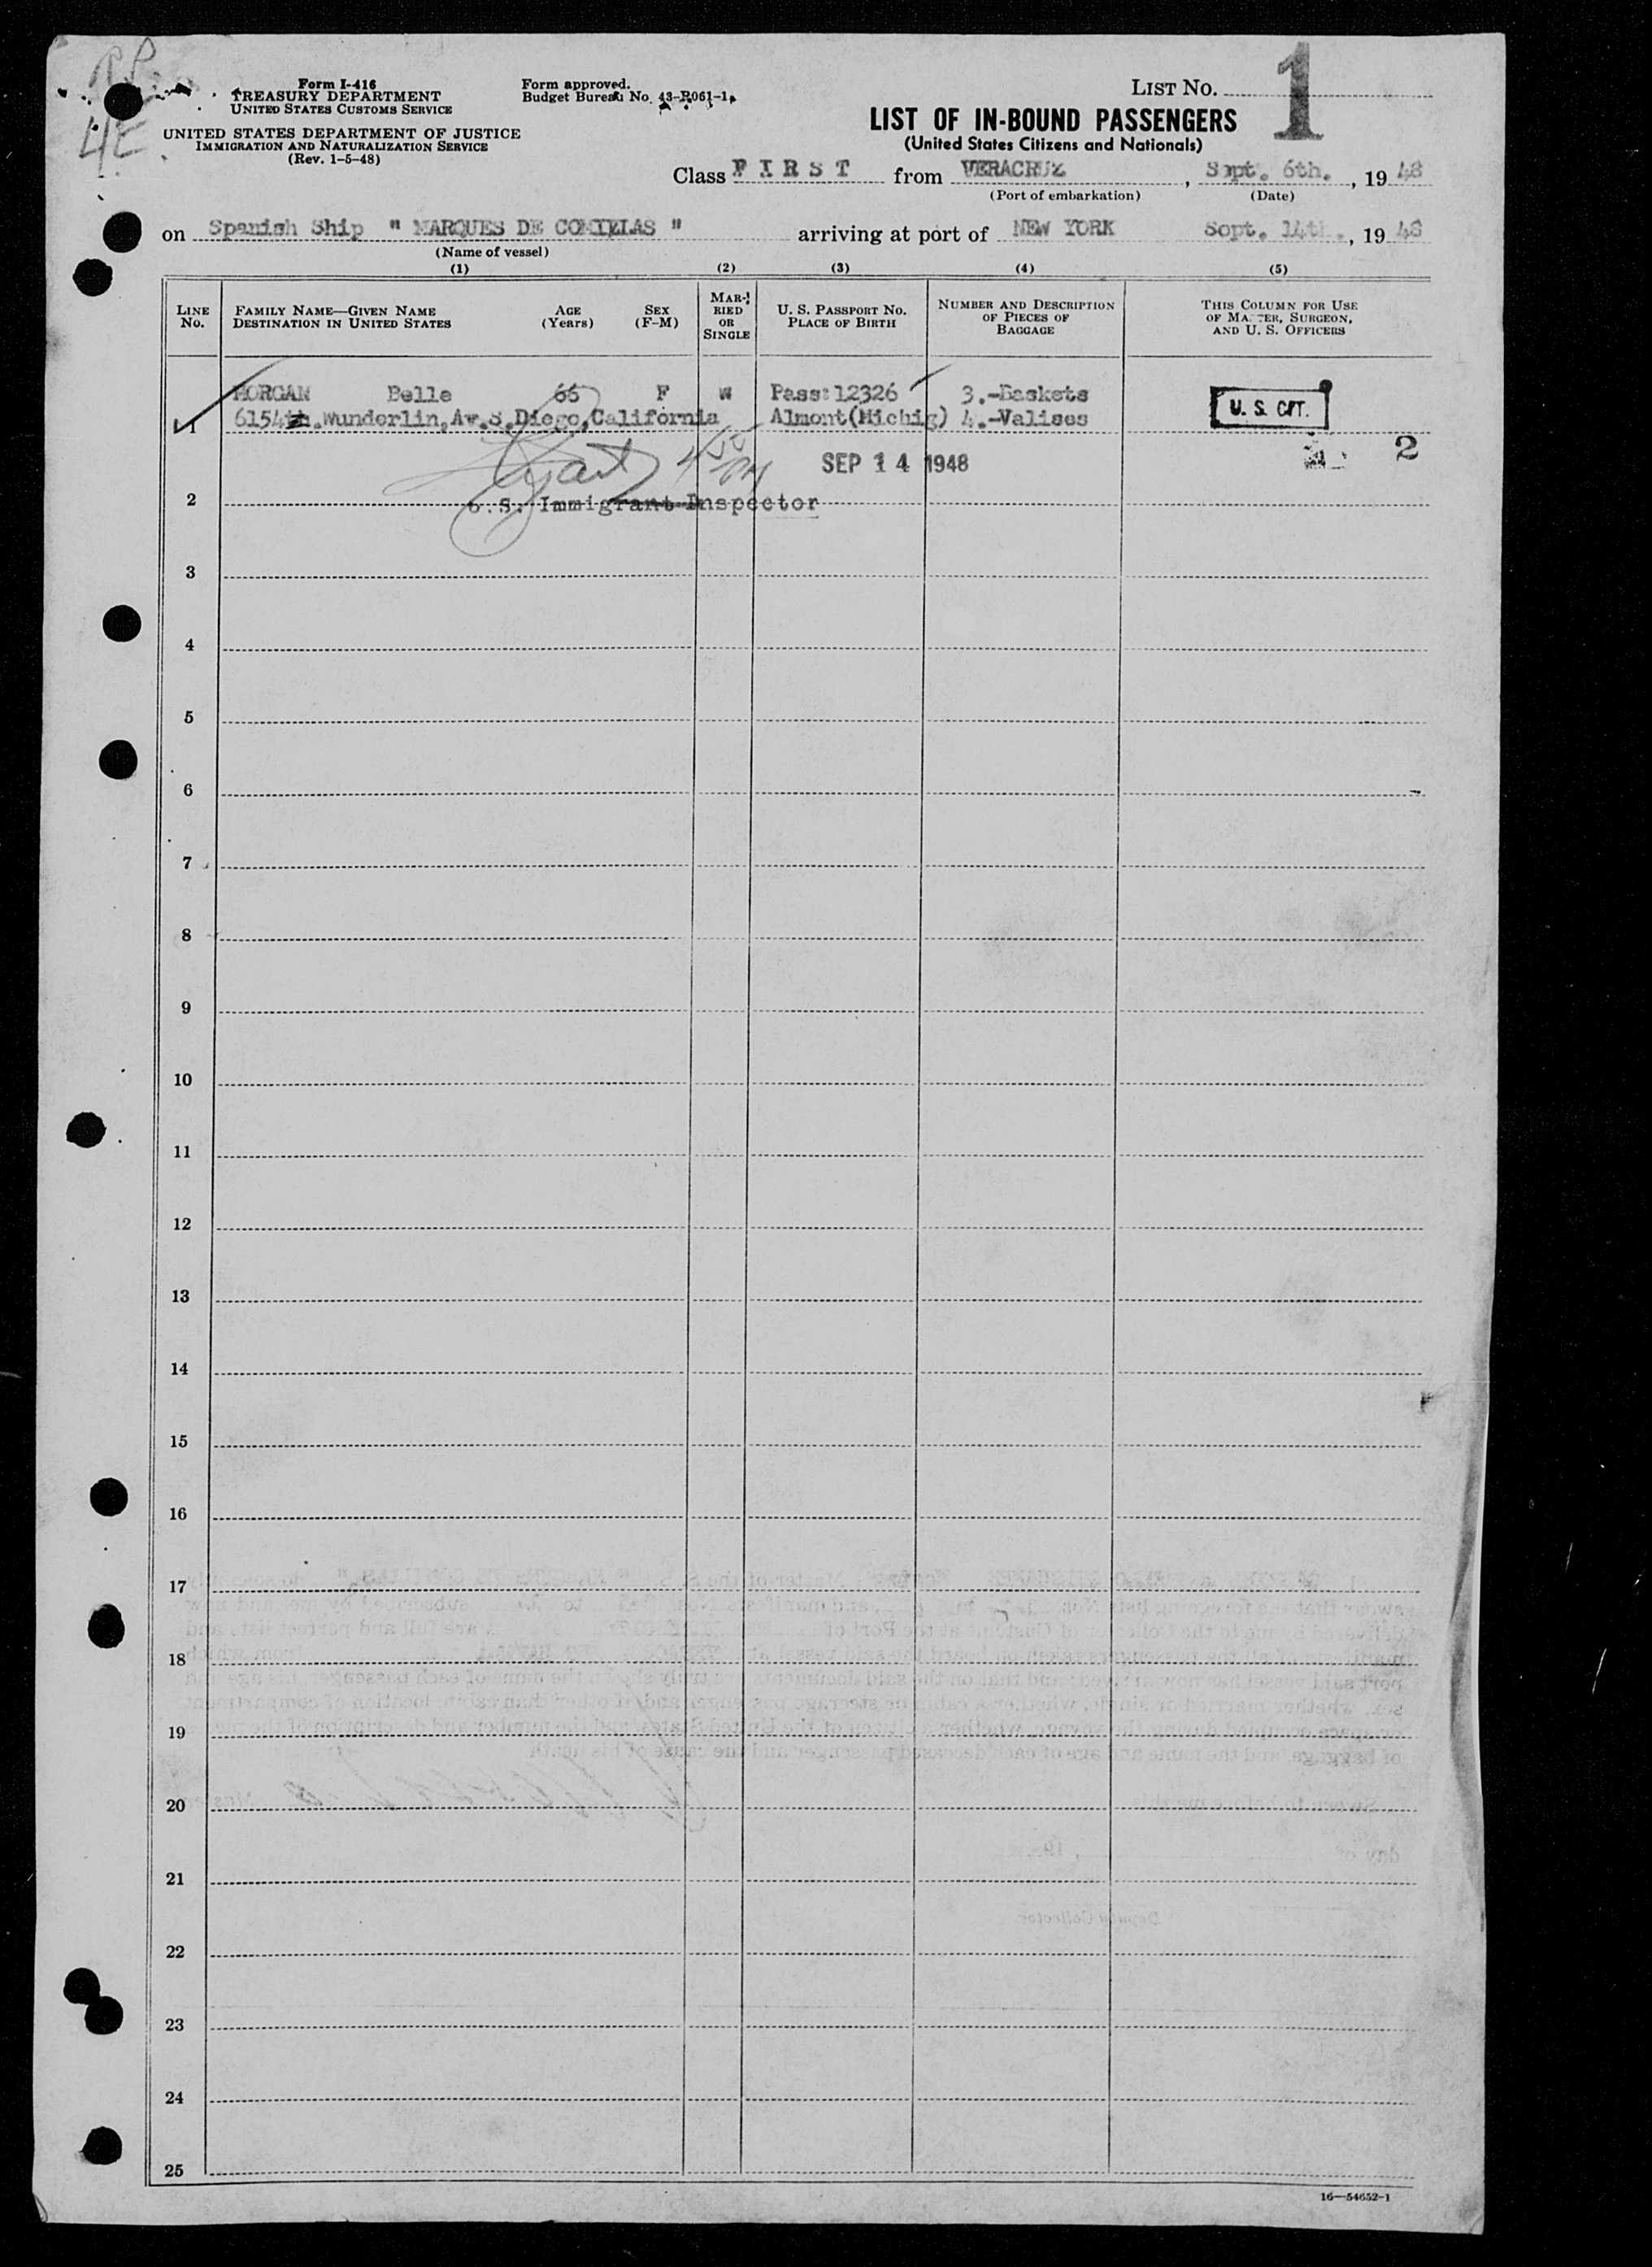 Form I-416
TREASURY DEPARTMENT
UNITED STATES CUSTOMS SERVICE
UNITED STATES DEPARTMENT OF JUSTICE
IMMIGRATION AND NATURALIZATION SERVICE
(Rev. 1-5-48)
Form approved.
Budget Bureau No. 43-R061-1.
LIST NO. 1
LIST OF IN-BOUND PASSENGERS
(United States Citizens and Nationals)
Class FIRST from VERACRUZ, Sept. 6th., 19 48
(Port of embarkation) (Date)
on Spanish Ship " MARQUES DE COMILLAS " arriving at port of NEW YORK Sept. 14th., 19 48
(Name of vessel)
(1) (2) (3) (4) (5)
LINE No.
FAMILY NAME—GIVEN NAME AGE SEX
DESTINATION IN UNITED STATES (Years) (F-M)
MARRIED OR SINGLE
U. S. PASSPORT NO.
PLACE OF BIRTH
NUMBER AND DESCRIPTION
OF PIECES OF
BAGGAGE
THIS COLUMN FOR USE
OF MASTER, SURGEON,
AND U. S. OFFICERS
MORGAN Belle 66 F W Pass:12326 3.-Baskets
1 6154 .Wunderlin,Av.S.Diego,California Almont(Michig) 4.-Valises
U. S. CIT.
2
SEP 14 1948
2 U.S. Immigrant Inspector
3
4
5
6
7
8
9
10
11
12
13
14
15
16
17
18
19
20
21
22
23
24
25
16—54652-1